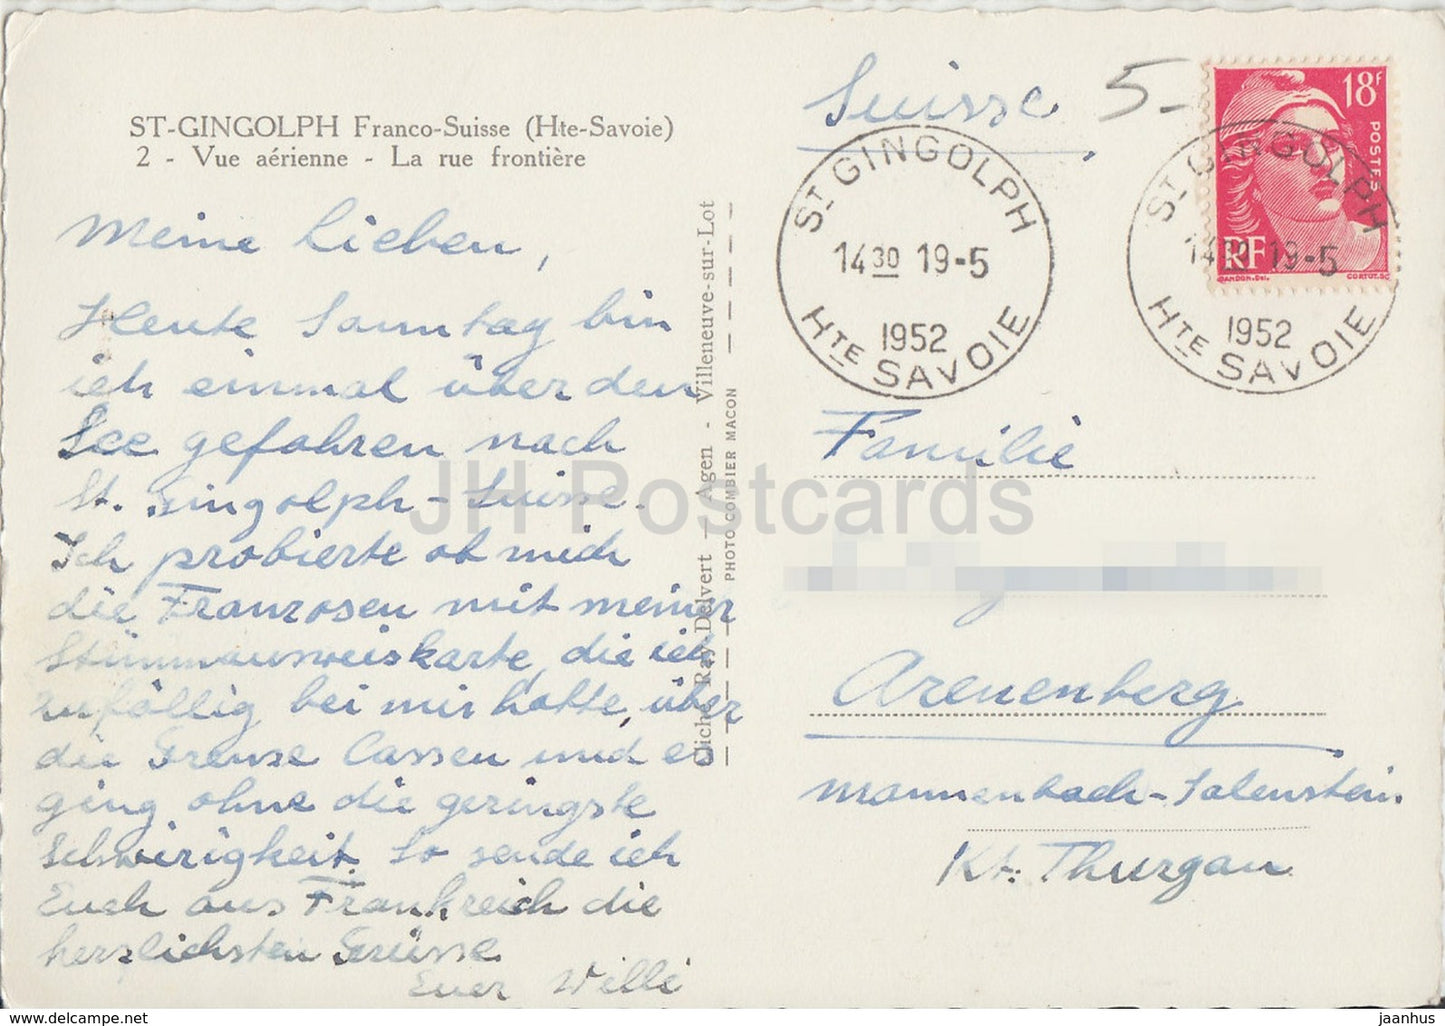 ST-GINGOLPH Franco-Suisse (Hte-Savoie)
2 - Vue aérienne - La rue frontière
Meine Lieben,
Heute Sonntag bin
ich einmal über den
See gefahren nach
St. Gingolph - Suisse.
Ich probierte ob mich
die Franzosen mit meiner
Stimmausweiskarte, die ich
zufällig bei mir hatte, über
die Grenze lassen und es
ging ohne die geringste
Schwirigkeit. So sende ich
Euch aus Frankreich die
herzlichsten Grüsse
Euer Willi
Cliché Ray Delvert - Agen - Villeneuve-sur-Lot
PHOTO COMBIER MACON
Suisse 5-
18F
POSTES
RF
GANDON.Del.
CORTOT.SC
ST GINGOLPH
14 30 19-5
1952
HTE SAVOIE
ST GINGOLPH
14 30 19-5
1952
HTE SAVOIE
Familie
Arenenberg
Mannenbach-Salenstein.
Kt. Thurgau
JH Postcards
delcampe.net
jaanhus